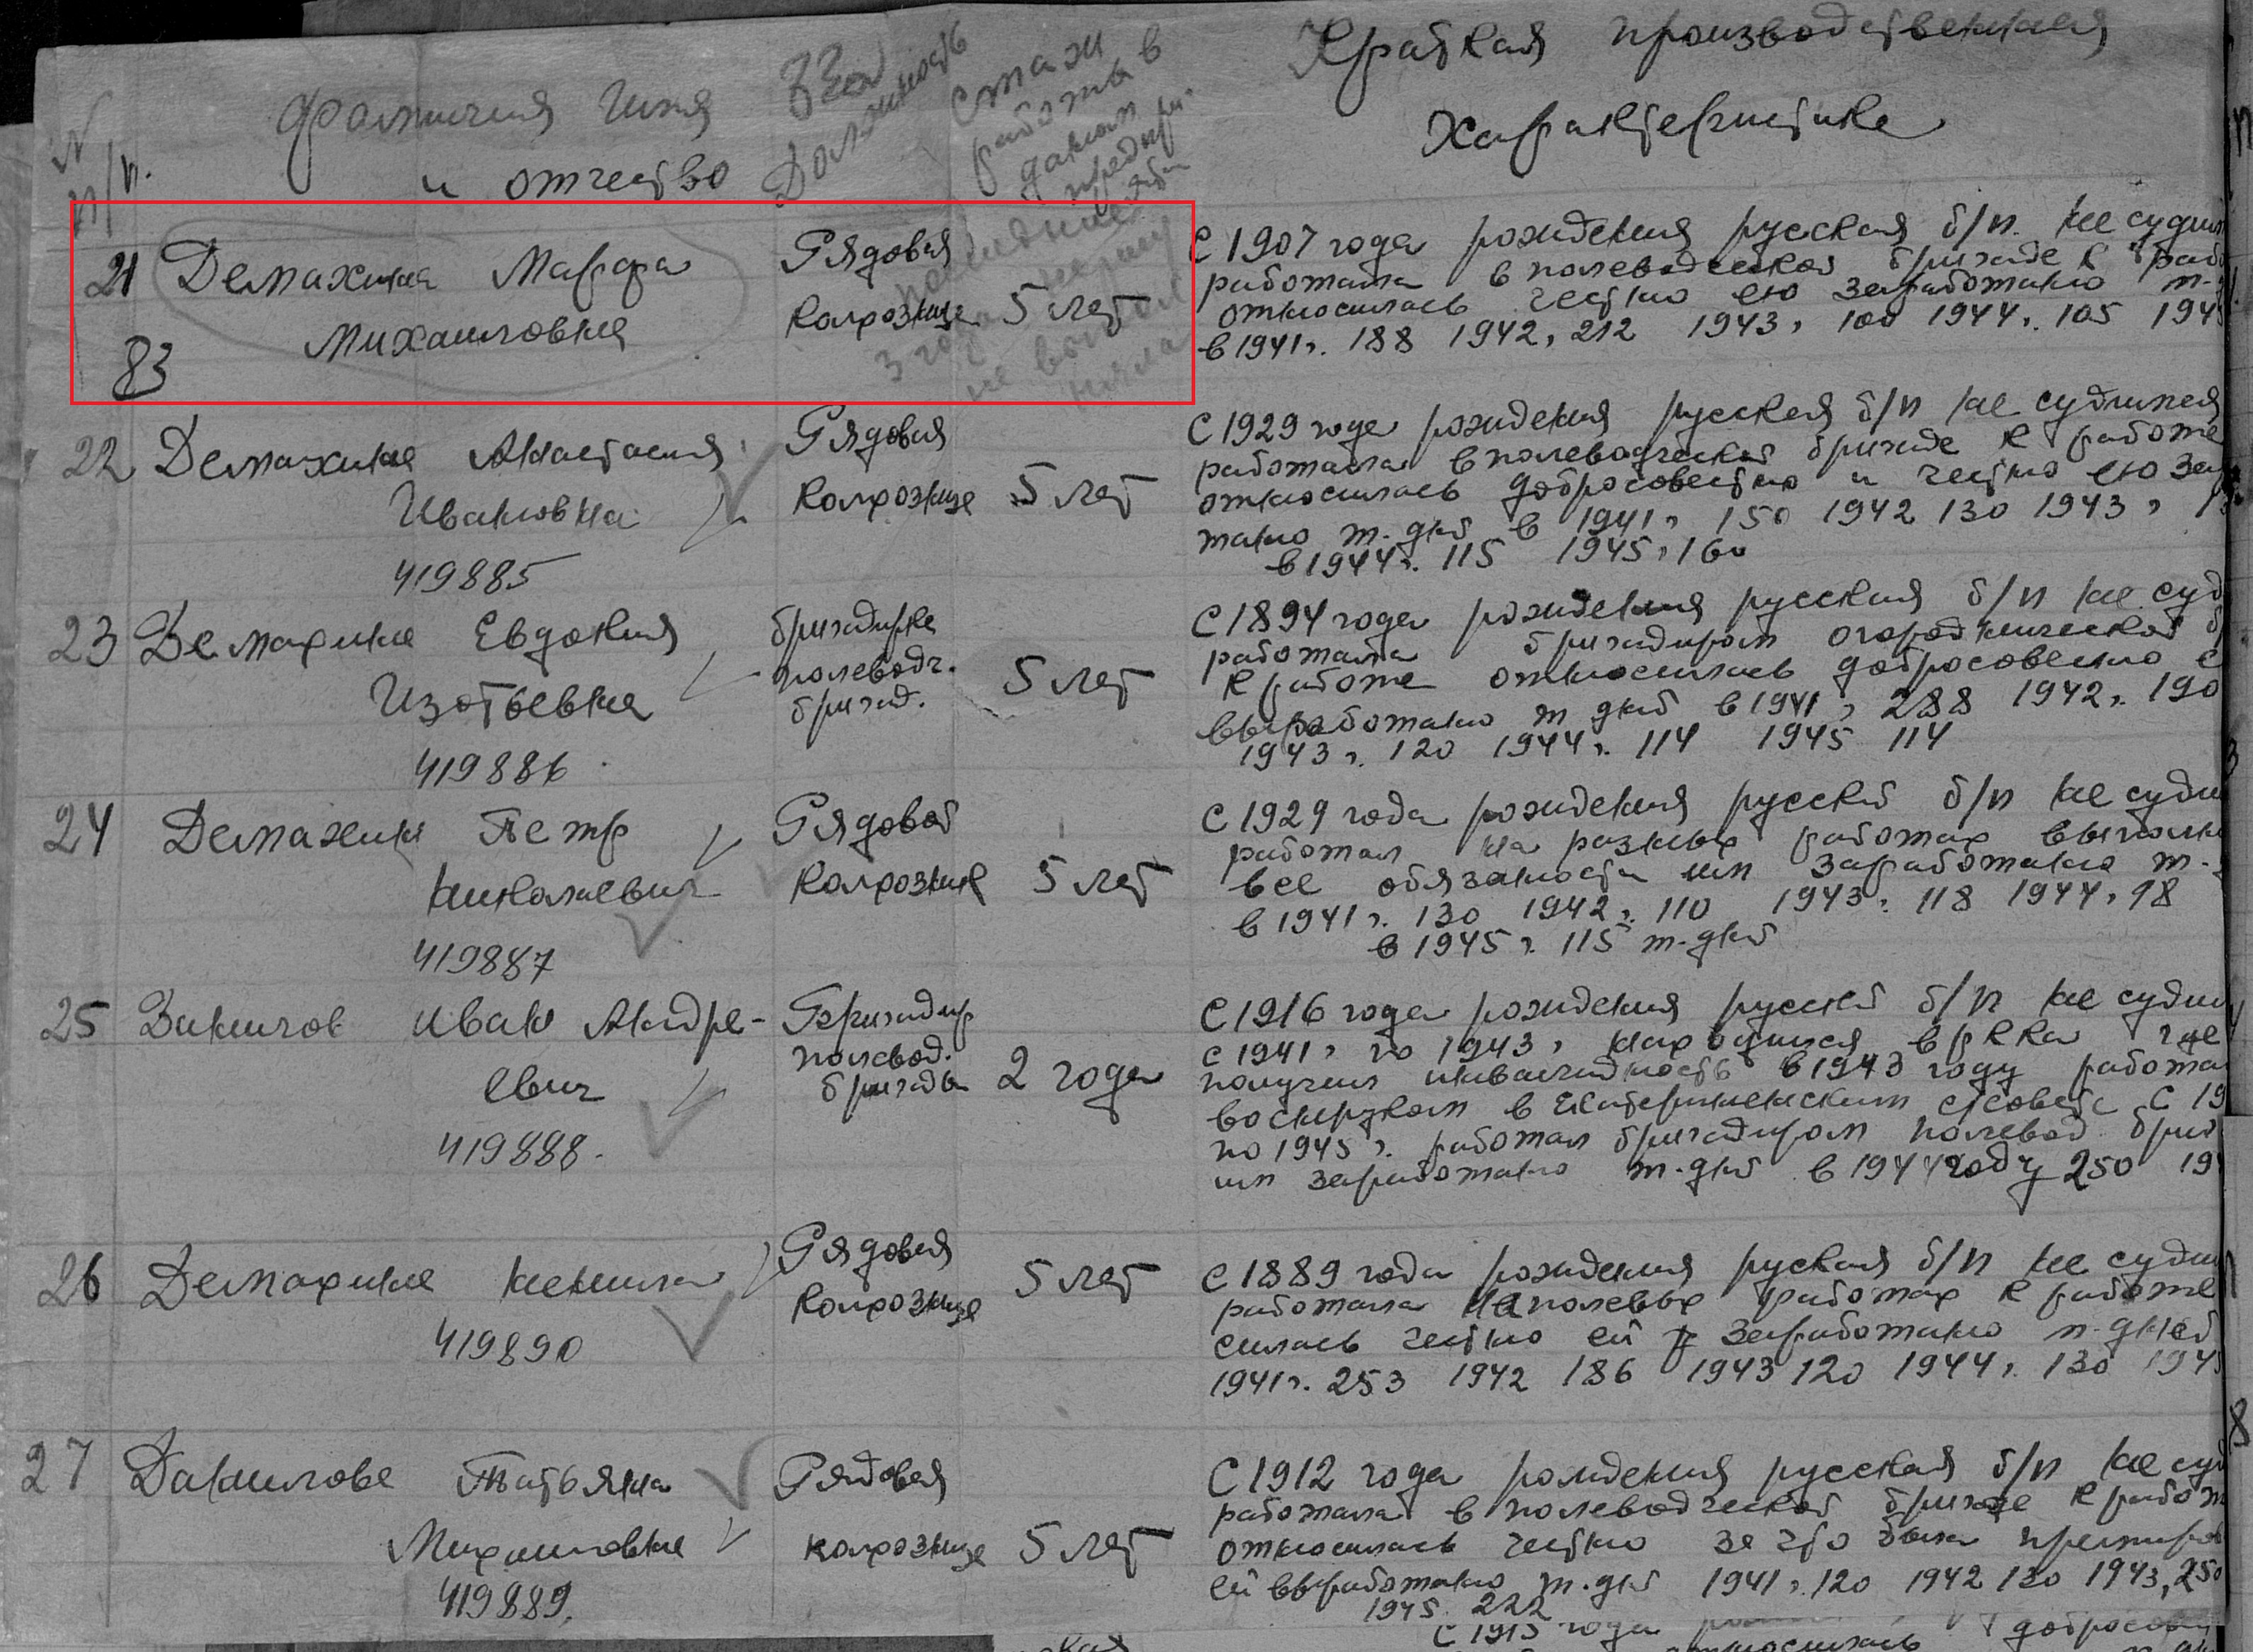 N
п/п.
Фамилия Имя
и отчество
Должность
Стаж
работы в
данном
предпри-
ятии
Краткая производственная
характеристика
21 Демахина Марфа
Михаиловна
83
Рядовая
колхознице 5 лет
последние
3 года
не выпол
няла
С 1907 года рождения русская б/п. не судил
работала в полеводческой бригаде к рабо
относилась честно ею заработано т-
в 1941г. 188 1942г 212 1943г 100 1944г. 105 194
22 Демахина Анастасия
Ивановна
419885
Рядовая
колхознице 5 лет
С 1929 года рождения русская б/п не судилася
работала в полеводческой бригаде к работе
относилась добросовестно и честно ею за
тано т. дней в 1941г 150 1942 130 1943г
в 1944г. 115 1945г 160
23 Демахина Евдокия
Изотьевна
419886
бригадирка
полеводч.
бригад.
5 лет
С 1894 года рождения русская б/п не суд
работала бригадиром огороднической б
к работе относилась добросовесно
выработано т дней в 1941г 288 1942г. 190
1943г. 120 1944г. 114 1945 114
24 Демахин Петр
Николаевич
419887
Рядовой
колхозник 5 лет
С 1929 года рождения русский б/п не суди
работал на разных работах выполнял
все обязаности им заработано т-
в 1941г. 130 1942г. 110 1943г. 118 1944г 98
в 1945г. 115 т-дней
25 Данилов Иван Андре-
евич
419888.
Бригадир
полевод.
бригады 2 года
С 1916 года рождения русский б/п не суди
с 1941г по 1943г находился в РККа где
получил инвалидность в 1943 году работа
военруком в Екатерининском с/совете С 19
по 1945г. работал бригадиром полевод. бриг
им заработано т-дней в 1944 году 250 19
26 Демахина Ненила
419890
Рядовая
колхознице 5 лет
С 1889 года рождения руская б/п не суди
работала на полевых работах к работе
силась честно ей заработано т-дней
1941г. 253 1942 186 1943 120 1944г. 130 194
27 Данилова Татьяна
Михаиловна
419889.
Рядовая
колхознице 5 лет
С 1912 года рождения русская б/п не суд
работала в полеводческой бригаде к работ
относилась честно за что была премиров
ей выработано т.дней 1941г. 120 1942 130 1943, 250
1945. 222
С 1915 года
относилась добросов